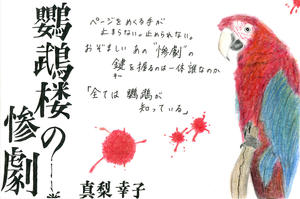 鸚鵡楼の惨劇
ページをめくる手が
止まらない。止められない。
おぞましいあの"惨劇"の
鍵を握るのは一体誰なのか
キー
「全ては 鸚鵡が
知っている」
真梨 幸子